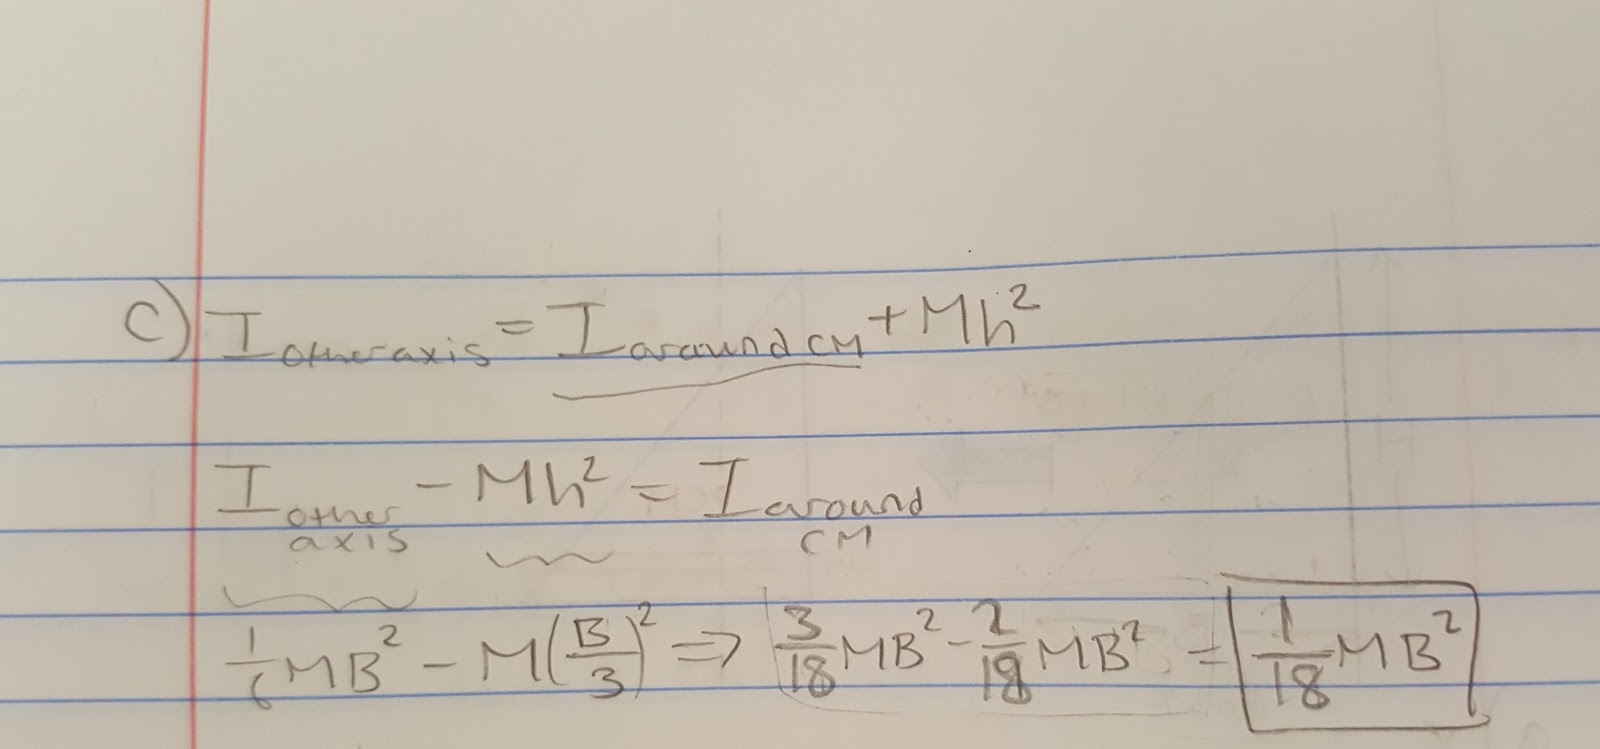 C) I other axis = I around CM + Mh²
I other axis - Mh² = I around CM
1/6 MB² - M(B/3)² => 3/18 MB² - 2/18 MB² = 1/18 MB²